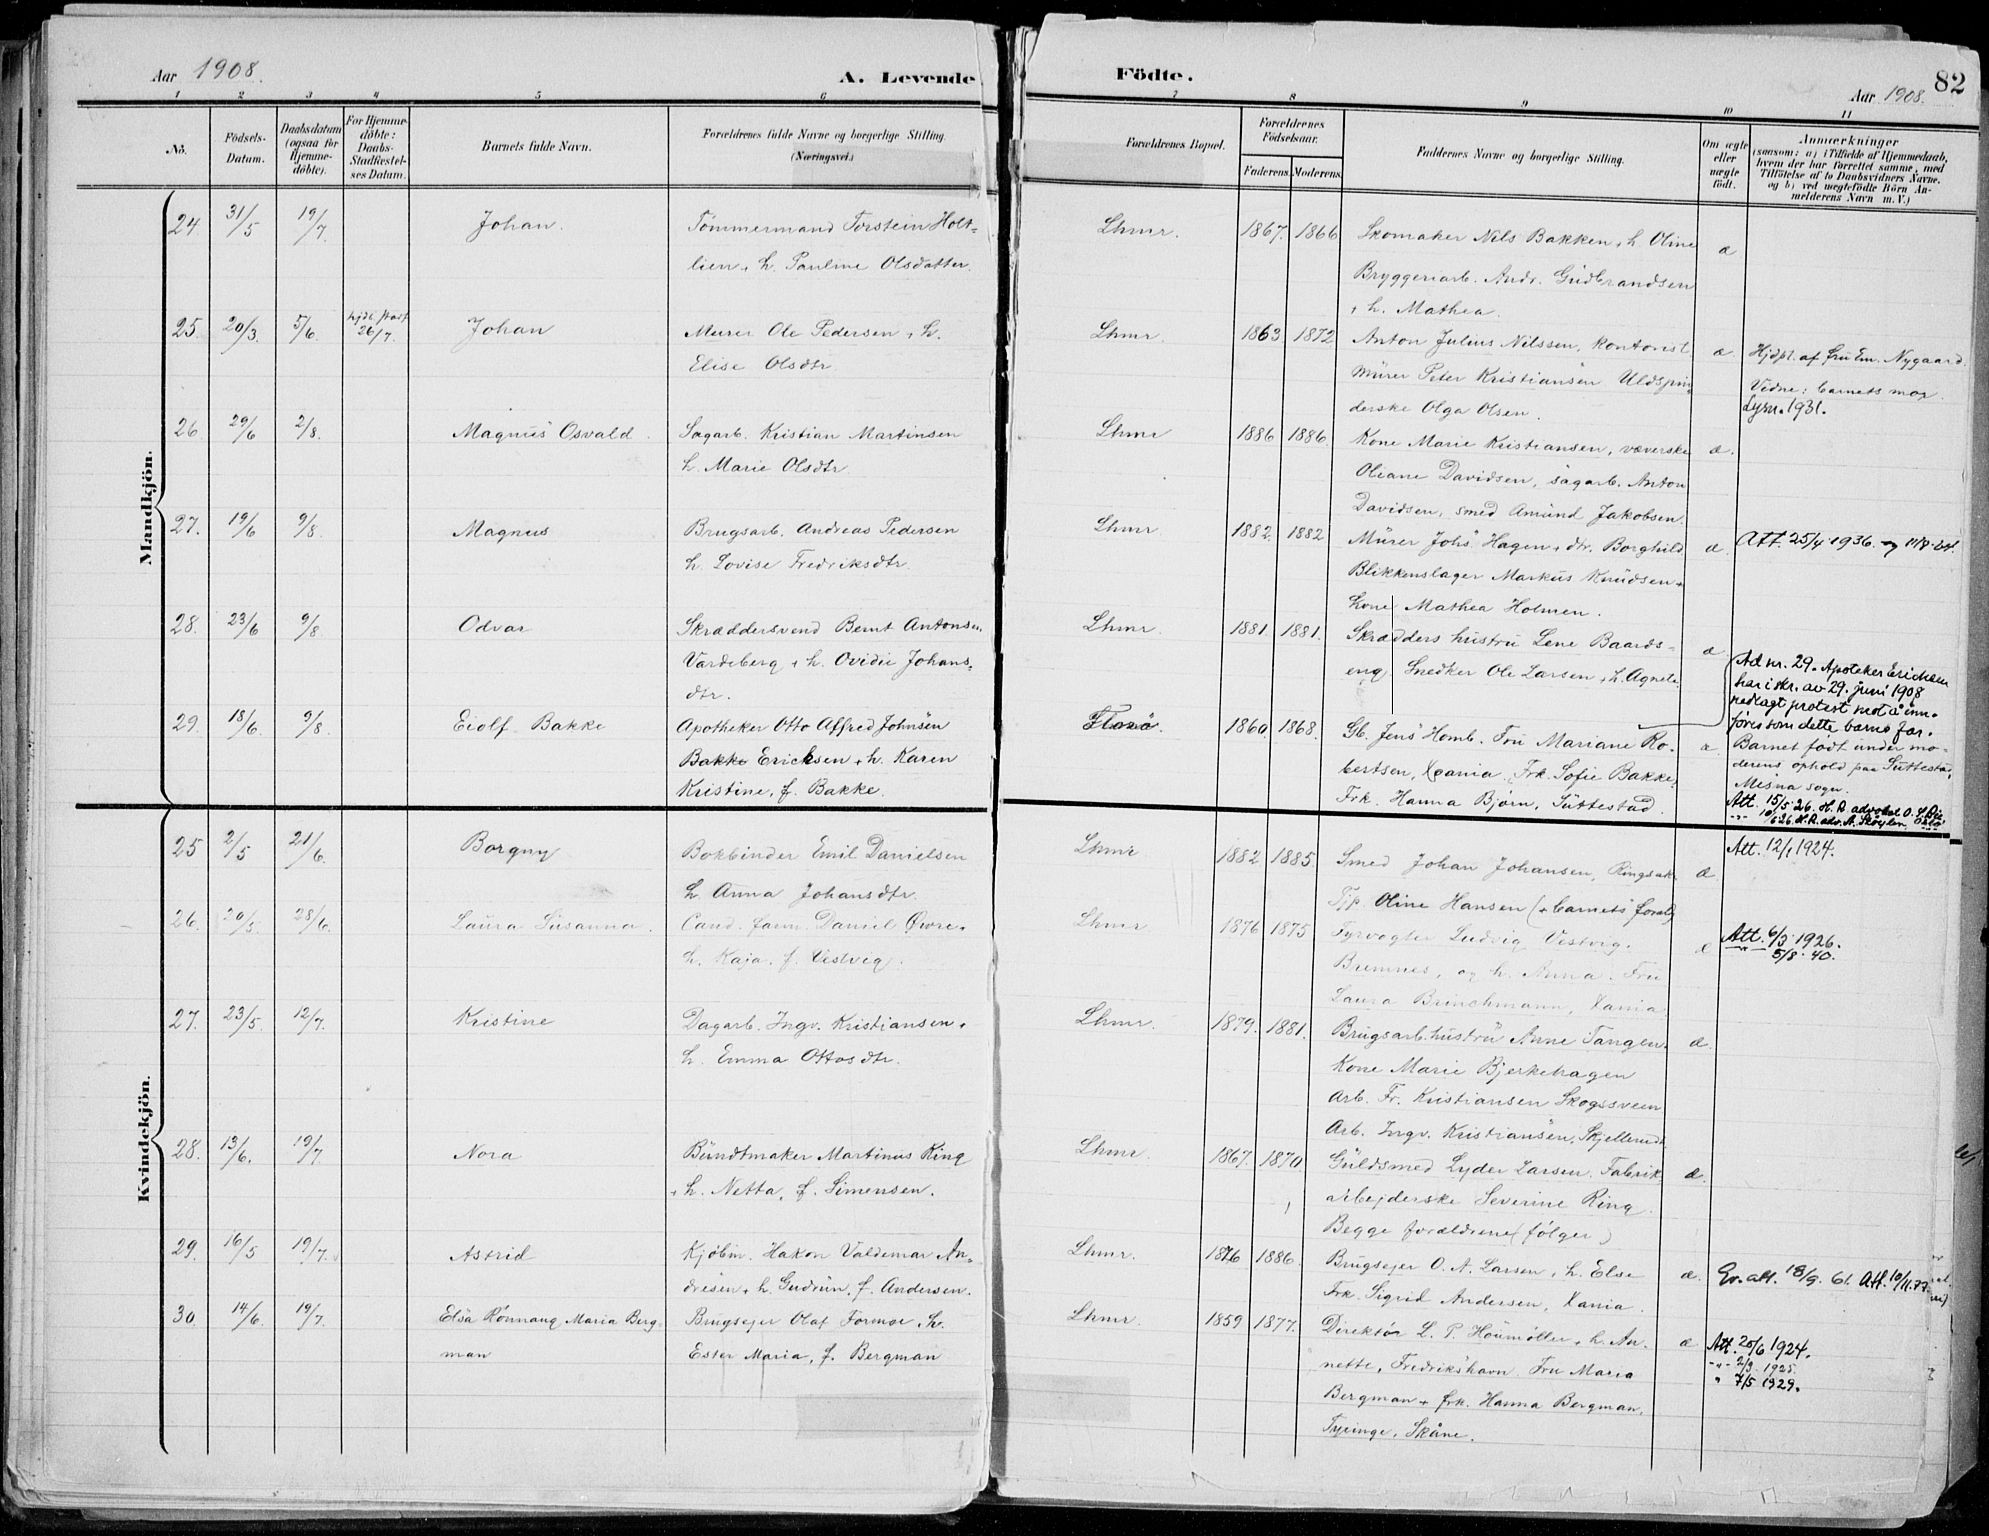 Aar 1908.
A. Levende
Födte.
82
Aar 1908.
1 2 3 4 5 6 7 8 9 10 11
No.
Födsels-
Datum.
Daabsdatum
(ogsaa for
Hjemme-
döbte).
For Hjemme-
döbte:
Daabs-
Stadfæstel-
ses Datum.
Barnets fulde Navn.
Forældrenes fulde Navne og borgerlige Stilling.
(Næringsvei.)
Forældrenes Bopæl.
Forældrenes
Födselsaar.
Faderens. Moderens.
Faddernes Navne og borgerlige Stilling.
Om ægte
eller
uægte
födt.
Anmærkninger
(saasom: a) i Tilfælde af Hjemmedaab,
hvem der har forrettet samme, med
Tilföielse af to Daabsvidners Navne.
og b) ved uægtefödte Börn An-
melderens Navn m. V.)
Mandkjön.
24 31/5 19/7 Johan. Tömmermand Torstein Holt-
lien, h. Pauline Olsdatter.
Lhmr. 1867. 1866 Skomaker Nils Bakken, h. Oline
Bryggeriarb. Andr. Gudbrandsen
+ h. Mathea.
æ
25. 20/3. 5/6. 26/7. Johan Murer Ole Pedersen + h.
Elise Olsdtr.
Lhmr. 1863 1872 Anton Julius Nilssen, kontorist
Murer Peter Kristiansen Uldspin-
derske Olga Olsen.
æ. Hjdpt. af fru Em. Nygaard.
Vidne: barnets mor.
Lysn. 1931.
26 29/6 2/8. Magnus Osvald. Sagarb. Kristian Martinsen
h. Marie Olsdtr.
Lhmr 1886 1886. Kone Marie Kristiansen, væverske
Oleane Davidsen, sagarb. Anton
Davidsen, smed Amund Jakobsen.
æ.
27. 19/6 9/8. Magnus Brugsarb. Andreas Pedersen
h. Lovise Fredriksdtr.
Lhmr 1882. 1882 Murer Johs Hagen, dtr. Borghild
Blikkenslager Markus Knudsen +
kone Mathea Holmen.
æ. Att. 25/4 1936.
28. 23/6 9/8. Odvar Skræddersvend Bernt Antonsen
Vardeberg + h. Ovidie Johans-
dtr.
Lhmr. 1881. 1881. Skrædders hustru Lene Baards-
eng Snedker Ole Larsen + h. Agnete.
æ
29. 18/6 9/8. Eiolf Bakke Apotheker Otto Alfred Johnsen
Bakke Erichsen + h. Karen
Kristine, f. Bakke.
Florö 1860. 1868. Gb. Jens Homb. Fru Mariane Ro-
bertsen, Xania. Frk. Sofie Bakke,
Frk. Hanna Bjørn, Suttestad.
æ.
Ad nr. 29. Apoteker Erichsen
har i skr. av 29. juni 1908
nedlagt protest mot å inn-
føres som dette barns far.
Barnet født under mo-
derens ophold paa Suttestad,
Mesna sogn.
Att. 15/5 26. H. R. advokat O.
-"- 10/6 26. H. R. adv. A. Skøyen, Oslo
Kvindekjön.
25 2/5 21/6 Borgny Bokbinder Emil Danielsen
h. Anna Johansdtr.
Lhmr 1882 1885. Smed Johan Johansen, Ringsak.
Pp. Oline Hansen (+ barnets foræld
æ. Att. 12/1 1924.
26. 20/5. 28/6. Laura Susanna. Cand. farm. Daniel Övre +
h. Kaja, f. Vestvig.
Lhmr. 1876 1875 Fyrvogter Ludvig Vestvig.
Bremnes, og h. Anna. Fru
Laura Brinchmann, Xania.
æ Att. 6/3 1926.
-"- 5/8. 40.
27. 23/5. 12/7. Kristine Dagarb. Ingv. Kristiansen +
h. Emma Ottosdtr.
Lhmr. 1879. 1881. Brugsarb. hustru Anne Tangen.
Kone Marie Bjerkehagen
Arb. Fr. Kristiansen Skogssveen
Arb. Ingv. Kristiansen, Skjellerud
æ.
28. 13/6. 19/7 Nora Bundtmaker Martinus Ring
+ h. Netta, f. Simensen.
Lhmr. 1867. 1870. Guldsmed Lyder Larsen. Fabrik
arbejderske Severine Ring.
Begge forældrene (følger)
æ.
29. 16/5 19/7. Astrid Kjøbm. Hakon Valdemar An-
dresen + h. Gudrun, f. Andersen.
Lhmr. 1876 1886. Brugsejer O. A. Larsen, h. Else
Frk. Sigrid Andersen, Xania.
æ. Gv. att. 18/9. 61. Att. 10/11.77
30. 14/6. 19/7. Elsa Rönnaug Maria Berg-
man
Brugsejer Olaf Formoe, h.
Ester Maria, f. Bergman
Lhmr. 1859 1877. Direktør L. P. Houmöller, h. An-
nette, Fredrikshavn. Fru Maria
Bergman + frk. Hanna Bergman,
Tyringe, Skåne.
æ Att. 20/6 1924.
-"- 2/9. 1925.
" 7/5 1929.